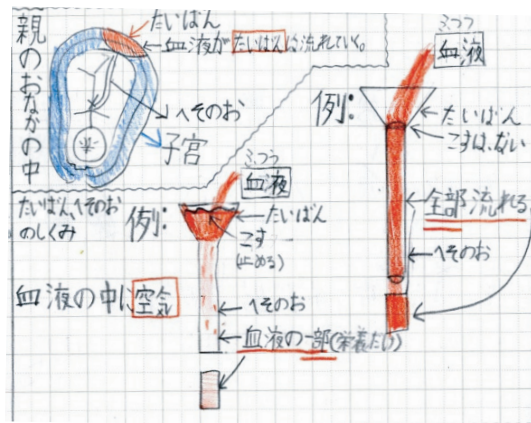 親のおなかの中
たいばん
血液がたいばんに流れていく。
へそのお
子宮
たいばん、へそのお
のしくみ
例:
ふつう
血液
たいばん
こす
(止める)
へそのお
血液の一部(栄養だけ)
血液の中に空気
例:
ふつう
血液
たいばん
こすは、ない
全部流れる
へそのお